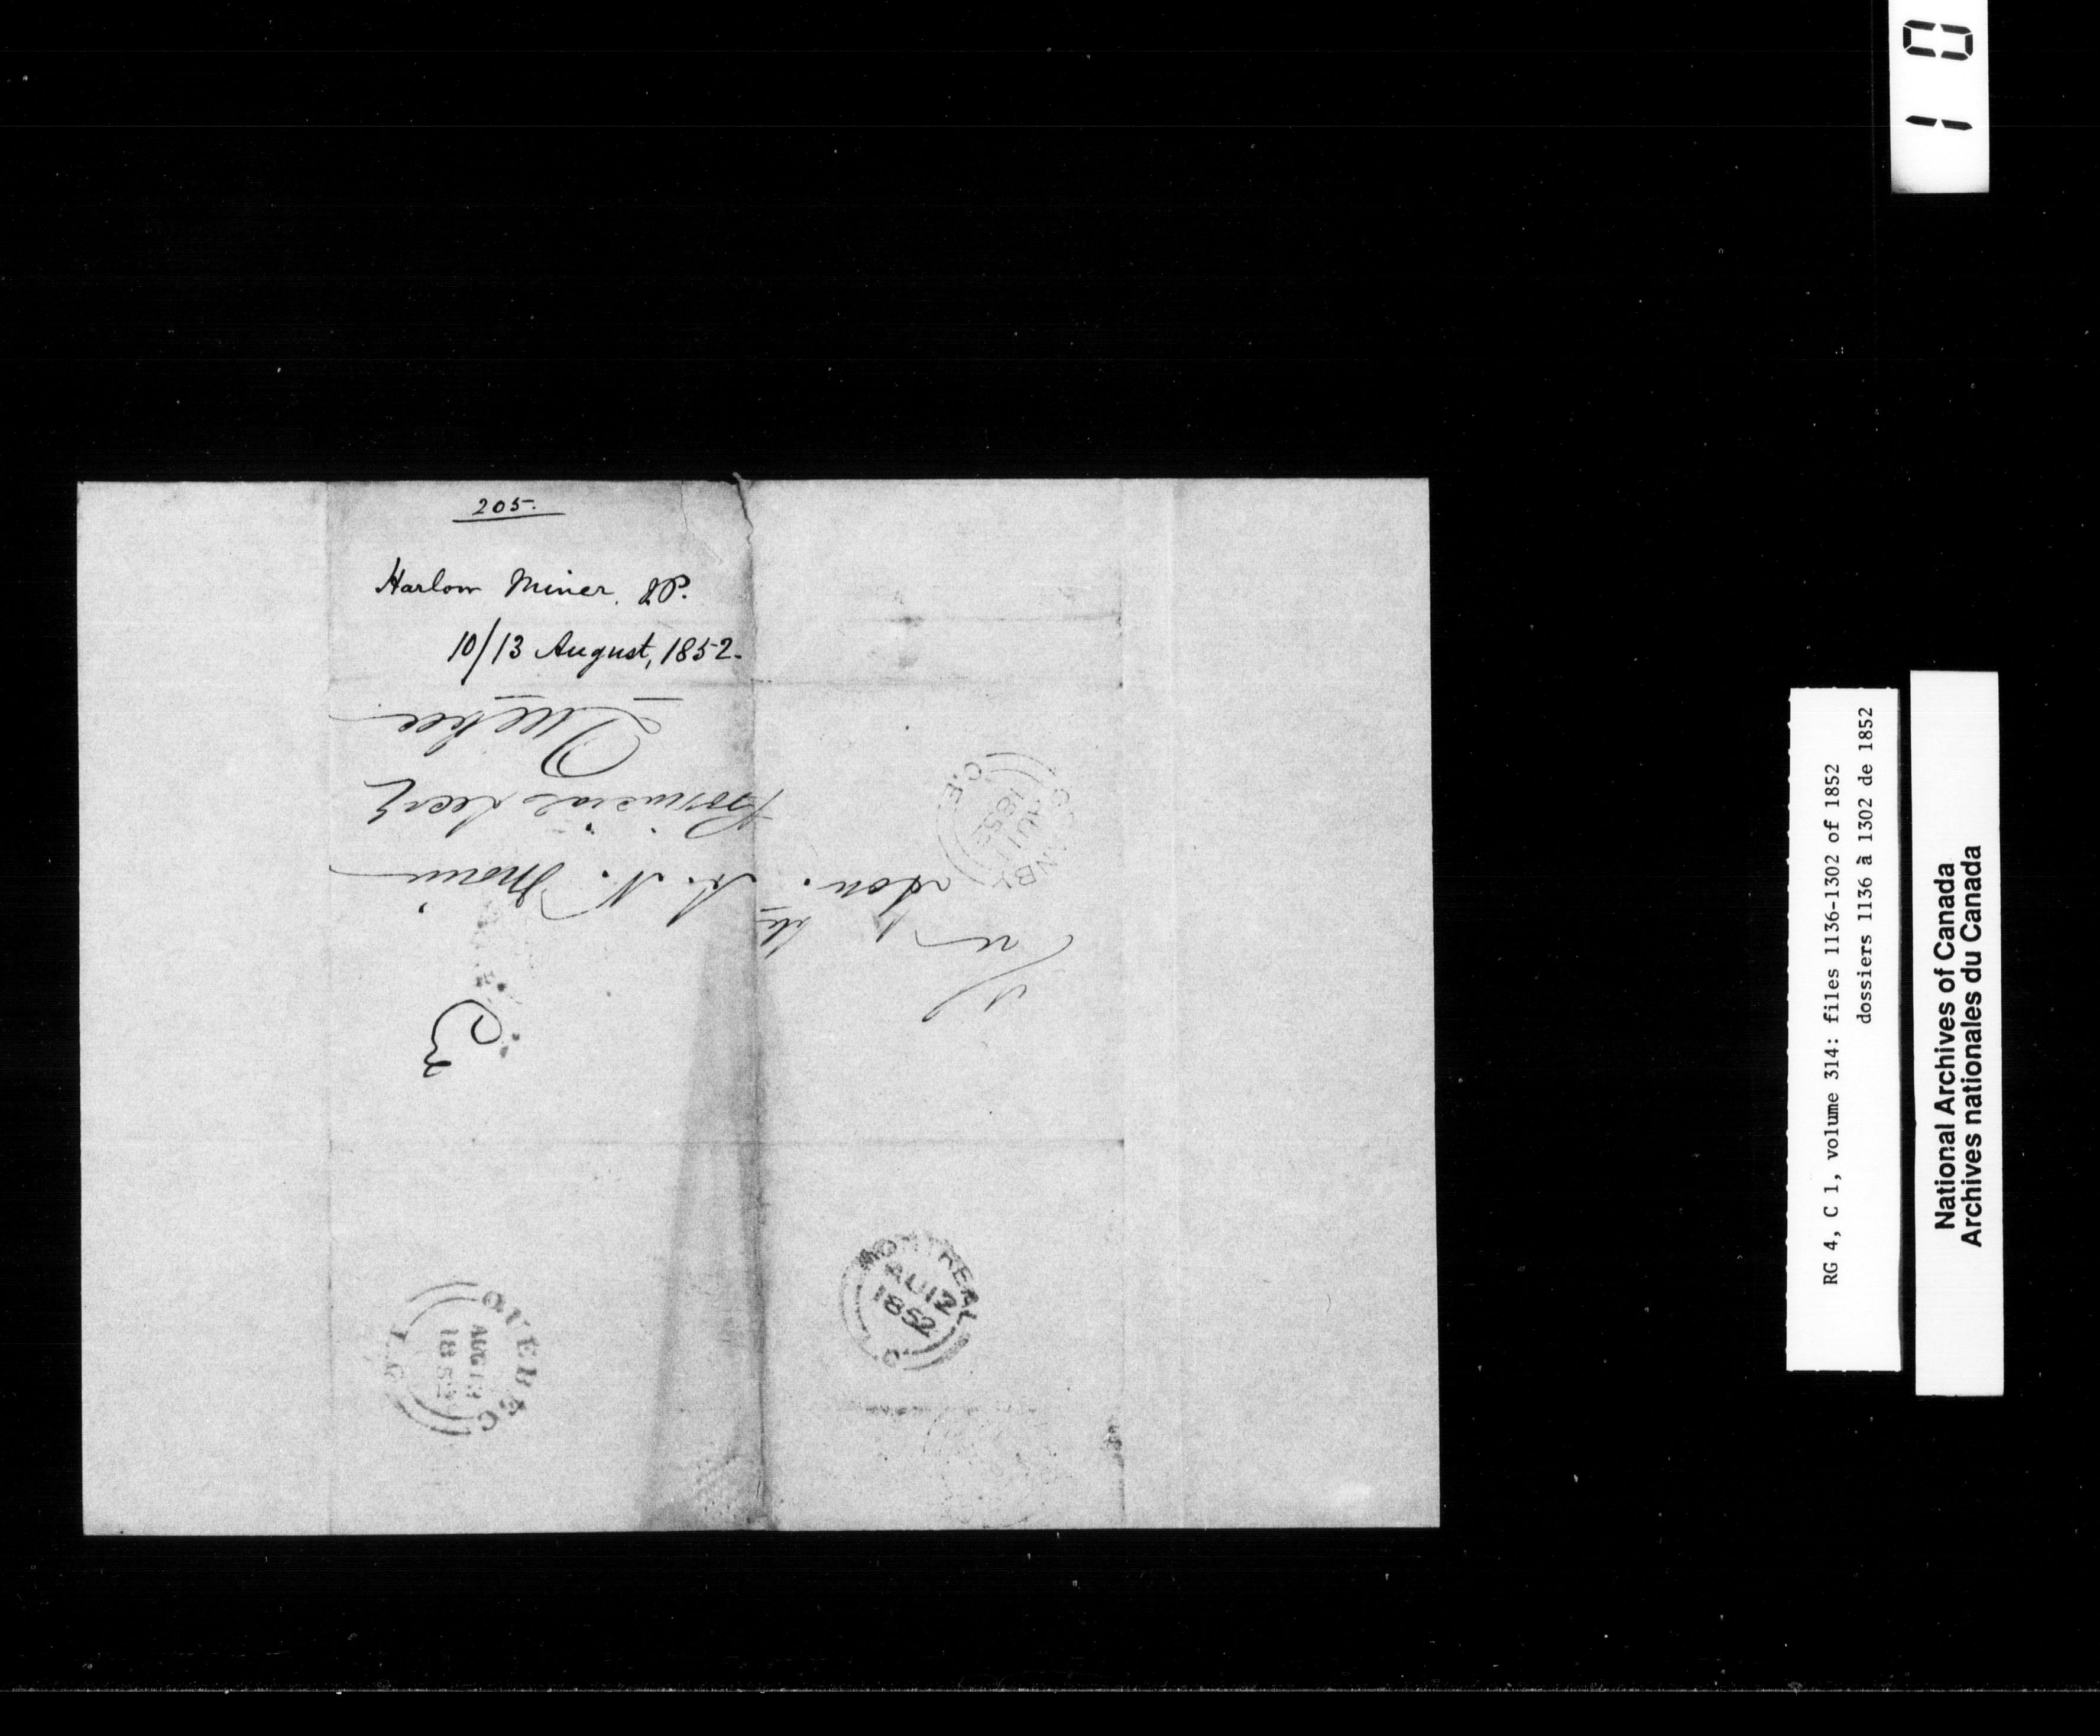 205.
Harlow Miner, J.P.
10/13 August, 1852.
The Honble
A. N. Morin
Provincial Secry
Quebec
3
GRANBY
AU 11
1852
C.E.
MONTREAL
AU 12
1852
L.C.
QUEBEC
AUG 13
1852
L.C.
RG 4, C 1, volume 314: files 1136-1302 of 1852
dossiers 1136 à 1302 de 1852
National Archives of Canada
Archives nationales du Canada
10